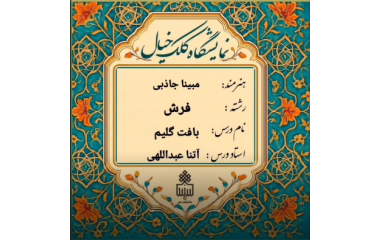 نمایشگاه کلک خیال
هنرمند: مبینا جاذبی
رشته: فرش
نام درس: بافت گلیم
استاد درس: آتنا عبداللهی